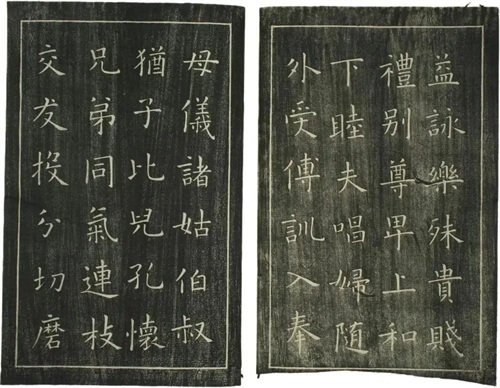 益詠樂殊貴賤
禮别尊卑上和
下睦夫唱婦随
外受傅訓入奉
母儀諸姑伯叔
猶子比兒孔懷
兄弟同氣連枝
交友投分切磨